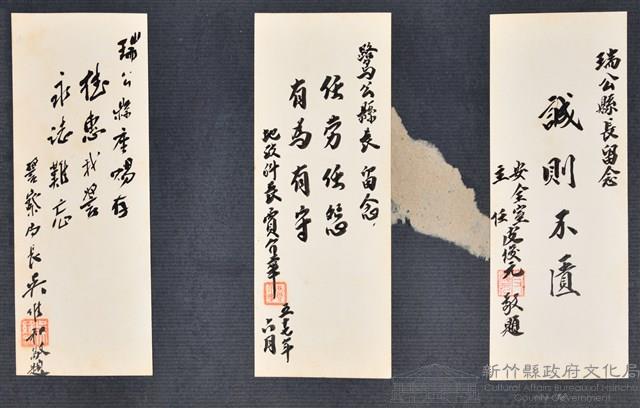 瑞公縣長留念
誠則不匱
安全室
主任
俊元 敬題
鷺公縣長 留念
任勞任怨
有為有守
地政科長賈
年
六月
瑞公縣座賜存
德惠我警
永誌難忘
警察局長吳 敬題
新竹縣政府文化局
Cultural Affairs Bureau of Hsinchu
County Government